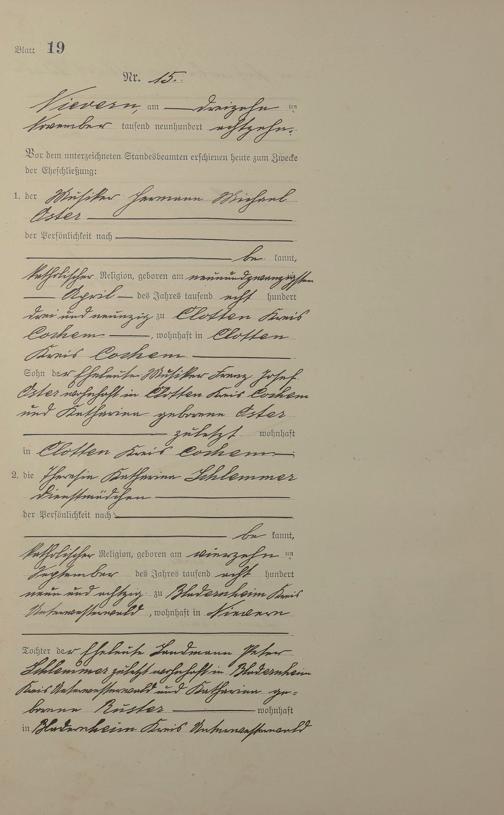 Blatt 19
Nr. 15.
Nievern, am dreizehnten
November tausend neunhundert achtzehn.
Vor dem unterzeichneten Standesbeamten erschienen heute zum Zwecke
der Eheschließung:
1. der Musiker Hermann Michael
Oster
der Persönlichkeit nach
be kannt,
katholischer Religion, geboren am neunundzwanzigsten
April des Jahres tausend acht hundert
drei und neunzig zu Clotten Kreis
Cochem, wohnhaft in Clotten
Kreis Cochem
Sohn der Eheleute Musiker Franz Josef
Oster wohnhaft in Clotten Kreis Cochem
und Katharina geborene Oster
zuletzt wohnhaft
in Clotten Kreis Cochem
2. die Theresia Katharina Schlemmer
Dienstmädchen
der Persönlichkeit nach
be kannt,
katholischer Religion, geboren am vierzehnten
September des Jahres tausend acht hundert
neun und achtzig zu Bladernheim Kreis
Unterwesterwald, wohnhaft in Nievern
Tochter der Eheleute Landmann Peter
Schlemmer zuletzt wohnhaft in Bladernheim
Kreis Unterwesterwald und Katharina ge-
borene Kuster wohnhaft
in Bladernheim Kreis Unterwesterwald